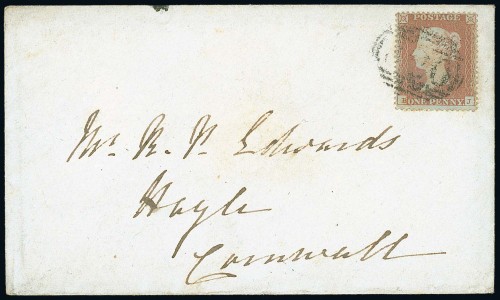 POSTAGE
ONE PENNY
Mr. R. N. Edwards
Hayle
Cornwall